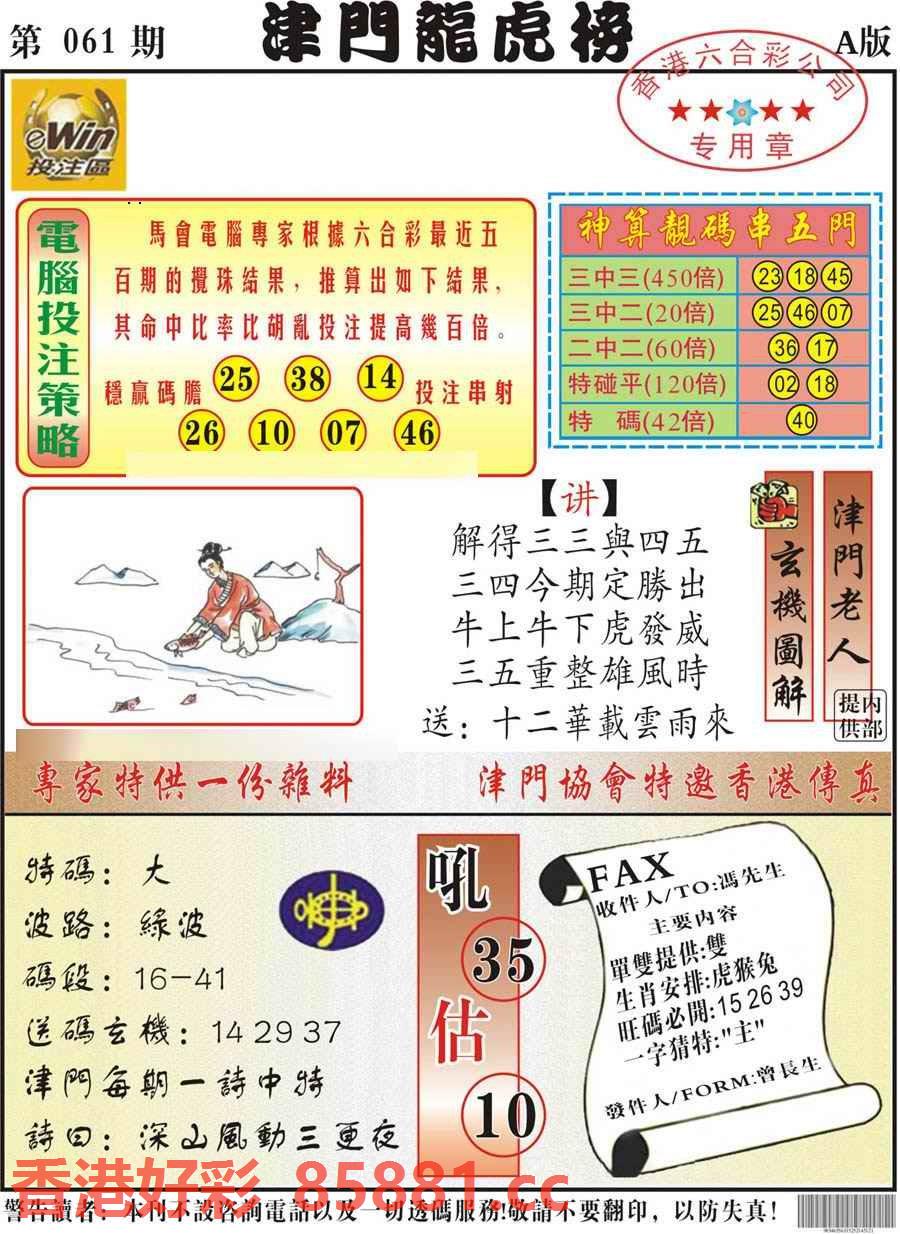 第 061 期
津門龍虎榜
A版
香港六合彩公司
专用章
eWin
投注區
電腦投注策略
馬會電腦專家根據六合彩最近五
百期的攪珠結果，推算出如下結果，
其命中比率比胡亂投注提高幾百倍。
穩贏碼膽 25 38 14 投注串射
26 10 07 46
神算靚碼串五門
三中三(450倍) 23 18 45
三中二(20倍) 25 46 07
二中二(60倍) 36 17
特碰平(120倍) 02 18
特 碼(42倍) 40
【讲】
解得三三與四五
三四今期定勝出
牛上牛下虎發威
三五重整雄風時
送：十二華載雲雨來
玄機圖解
津門老人
内部提供
專家特供一份雜料
津門協會特邀香港傳真
特碼：大
波路：綠波
碼段：16-41
送碼玄機：14 29 37
津門每期一詩中特
詩曰：深山風動三更夜
吼
35
估
10
FAX
收件人/TO:馮先生
主要内容
單雙提供:雙
生肖安排:虎猴兔
旺碼必開:15 26 39
一字猜特:"主"
發件人/FORM:曾長生
香港好彩 85881.cc
警告讀者：本刊不設咨詢電話以及一切透碼服務!敬請不要翻印，以防失真!